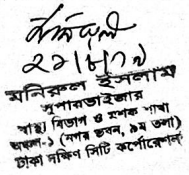 ২১/৮/১৭
মনিরুল ইসলাম
সুপারভাইজার
স্বাস্থ্য বিভাগ ও মশক শাখা
অঞ্চল-১ (নগর ভবন, ৯ম তলা)
ঢাকা দক্ষিণ সিটি কর্পোরেশন